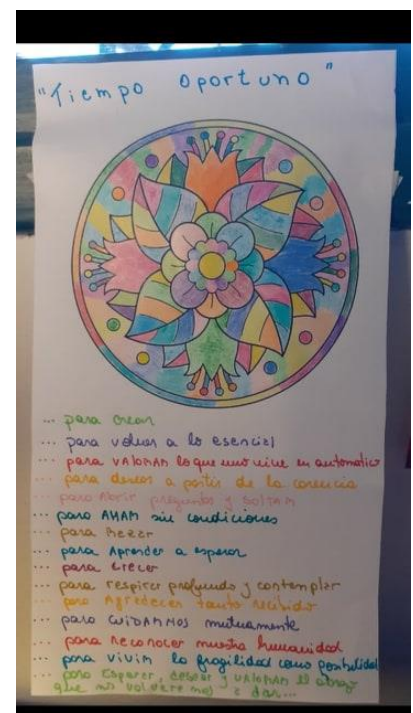 "Tiempo oportuno"
... para crear
... para volver a lo esencial
... para VALORAR lo que uno vive en automático
... para desear a partir de la carencia
... para Abrir preguntas y SOLTAR
... para AMAR sin condiciones
... para Rezar
... para Aprender a esperar
... para crecer
... para respirar profundo y contemplar
... para Agradecer tanto recibido
... para CUIDARNOS mutuamente
... para Reconocer nuestra humanidad
... para VIVIR la fragilidad como posibilidad
... para esperar, desear y VALORAR el abrazo
que nos volveremos a dar...